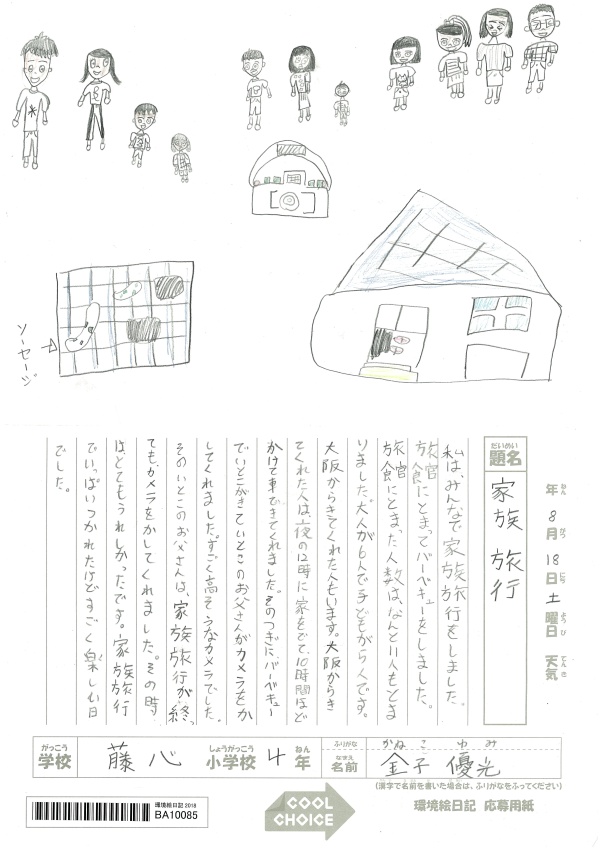 ソーセージ
年 8月 18日 土曜日 天気
ねん がつ にち ようび てんき
だいめい
題名
家族旅行
私は、みんなで家族旅行をしました。
旅館にとまってバーベキューをしました。
旅館にとまった人数は、なんと11人もとま
りました。大人が6人で子どもが5人です。
大阪からきてくれた人もいます。大阪からき
てくれた人は、夜の12時に家をでて、10時間ほど
かけて車できてくれました。そのつぎに、バーベキュー
でいとこがきていとこのお父さんがカメラをか
してくれました。すごく高そうなカメラでした。
そのいとこのお父さんは、家族旅行が終っ
てもカメラをかしてくれました。その時
は、とてもうれしかったです。家族旅行
でいっぱいつかれたけどすごく楽しい日
でした。
がっこう しょうがっこう ねん ふりがな かねこ ゆみ
学校 藤心 小学校 4年 名前 金子 優光
(漢字で名前を書いた場合は、ふりがなをふってください)
環境絵日記 2018
BA10085
COOL
CHOICE
環境絵日記 応募用紙